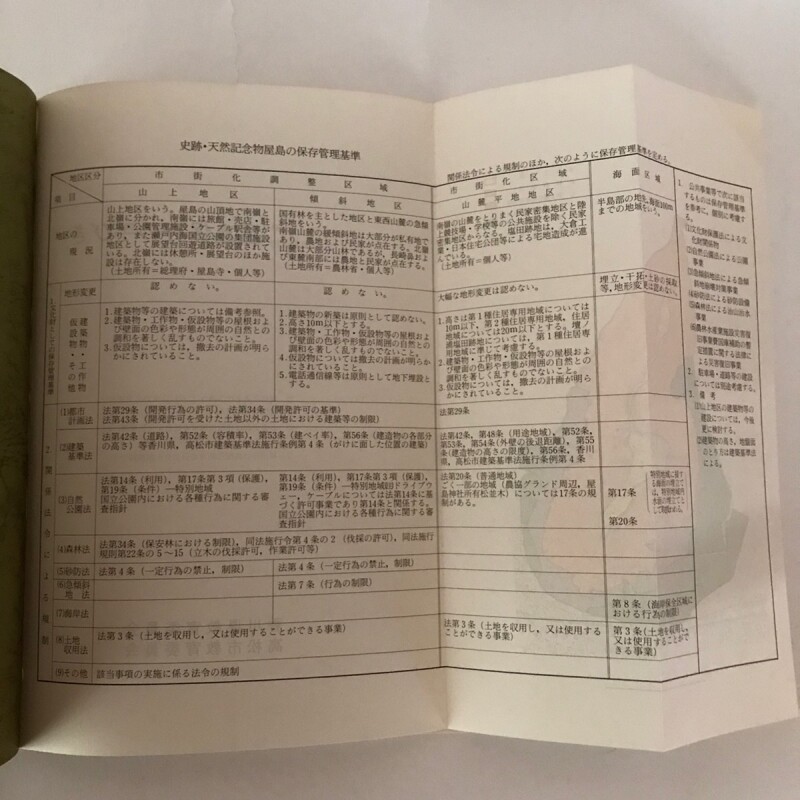 史跡・天然記念物屋島の保存管理基準
関係法令による規制のほか，次のように保存管理基準を定める。
地区区分
項目
市街化調整区域
市街化区域
海面区域
山上地区
傾斜地区
山麓平地地区
地区の概況
山上地区をいう。屋島の山頂地で南嶺と
北嶺に分かれ，南嶺には旅館・売店・駐
車場・公園管理施設・ケーブル駅舎等が
あり，また瀬戸内海国立公園の集団施設
地区として展望台回遊道路が設置されて
いる。北嶺には休憩所・展望台のほか施
設は存しない。
（土地所有＝総理府・屋島寺・個人等）
国有林を主とした地区と東西山麓の急傾
斜地をいう。
南嶺山麓の緩傾斜地は大部分が私有地で
あり，農地及び民家が点在する。北嶺
山麓は大部分山林であるが，長崎鼻およ
び東麓南部には農地と民家が点在する。
（土地所有＝農林省・個人等）
南嶺の山麓をとりまく民家密集地区と陸
上競技場・学校等の公共施設を除く民家
密集地区からなる。塩田跡地は，大倉工
業・日本住宅公団等による宅地造成が進
んでいる。
（土地所有＝個人等）
半島部の地先，海面100m
までの地域をいう。
地形変更
認めない。
認めない。
大幅な地形変更は認めない。
埋立・干拓・土砂の採取
等，地形変更は認めない。
建築物・
仮設物・その他
工作物
1.建築物等の建築については備考参照。
2.建築物・工作物・仮設物等の屋根およ
び壁面の色彩や形態が周囲の自然との
調和を著しく乱すものでないこと。
3.仮設物については，撤去の計画が明ら
かにされていること。
1.建築物の新築は原則として認めない。
2.高さ10m以下とする。
3.建築物・工作物・仮設物等の屋根およ
び壁面の色彩や形態が周囲の自然との
調和を著しく乱すものでないこと。
4.仮設物については撤去の計画が明らか
にされていること。
5.電話通信線等は原則として地下埋設と
する。
1.高さは第1種住居専用地域については
10m以下，第2種住居専用地域，住居
地域については15m以下とする。
2.建築物・工作物・仮設物等の屋根およ
び壁面の色彩や形態が周囲の自然との
調和を著しく乱すものでないこと。
3.仮設物について，撤去の計画が明らか
にされていること。
2.関係法令による規制
(1)都市計画法
法第29条（開発行為の許可），法第34条（開発許可の基準）
法第43条（開発許可を受けた土地以外の土地における建築等の制限）
法第29条
(2)建築基準法
法第42条（道路），第52条（容積率），第53条（建ペイ率），第56条（建造物の各部分
の高さ）等香川県，高松市建築基準法施行条例第4条（がけに面した位置の建築）
法第42条，第48条（用途地域），第52条，
第53条，第54条（外壁の後退距離），第55
条（建造物の高さの限度），第56条，香川
県，高松市建築基準法施行条例第4条
(3)自然公園法
法第14条（利用），第17条第3項（保護），
第19条（条件）―特別地域
国立公園内における各種行為に関する審
査指針
法第14条（利用），第17条第3項（保護），
第19条（条件）―特別地域旧ドライブウ
ェー，ケーブルについては法第14条に基
づく許可事業であり第14条と関係する。
国立公園内における各種行為に関する審
査指針
法第20条（普通地域）
ごく一部の地域（農協グランド周辺，屋
島神社所有松並木）については17条の規
制がある。
第17条
特別地域に接する海面の埋立ては，特別地域内水面の埋立てとして取扱われる。
第20条
(4)森林法
法第34条（保安林における制限），同法施行令第4条の2（伐採の許可），同法施行
規則第22条の5～15（立木の伐採許可，作業許可等）
(5)砂防法
法第4条（一定行為の禁止，制限）
法第4条（一定行為の禁止，制限）
(6)急傾斜地法
法第7条（行為の制限）
(7)海岸法
第8条（海岸保全区域に
おける行為の制限）
(8)土地収用法
法第3条（土地を収用し，又は使用することができる事業）
法第3条（土地を収用し，又は使用する
ことができる事業）
第3条（土地を収用し，
又は使用することがで
きる事業）
(9)その他
該当事項の実施に係る法令の規制
1. 公共事業等で次に該当
するものは保存管理基準
を参考に，個別に考慮す
る。
(1)文化財保護法による文
化財関係物
(2)自然公園法による公園
事業
(3)急傾斜地法による急傾
斜地崩壊対策事業
(4)砂防法による砂防設備
(5)森林法による治山治水
事業
(6)農林水産業施設災害復
旧事業費国庫補助の暫
定措置に関する法律に
よる災害復旧事業
2. 駐車場・道路等の建設
については別途考慮する。
3. 備考
(1)山上地区の建築物等の
建設については，今後
更に検討する。
(2)建築物の高さ，地盤面
のとり方は建築基準法
による。